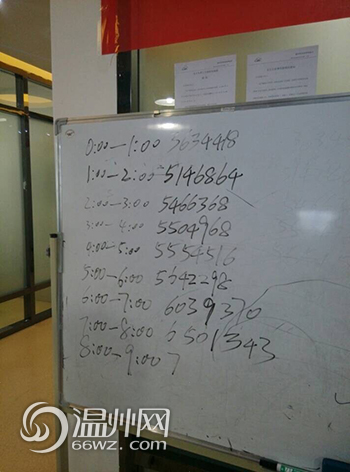 0:00—1:00 5634418
1:00—2:00 5146864
2:00—3:00 5466368
3:00—4:00 5504968
4:00—5:00 5554516
5:00—6:00 5642292
6:00—7:00 6039370
7:00—8:00 6501343
8:00—9:00 7
温州网
66wz.com